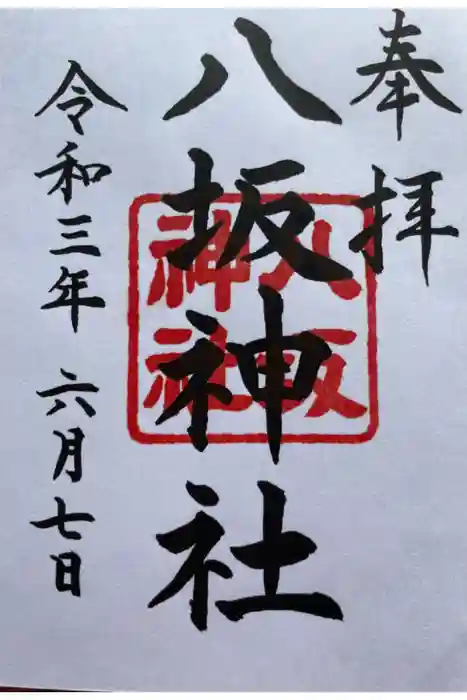 奉拝
八坂神社
八坂
神社
令和三年 六月七日